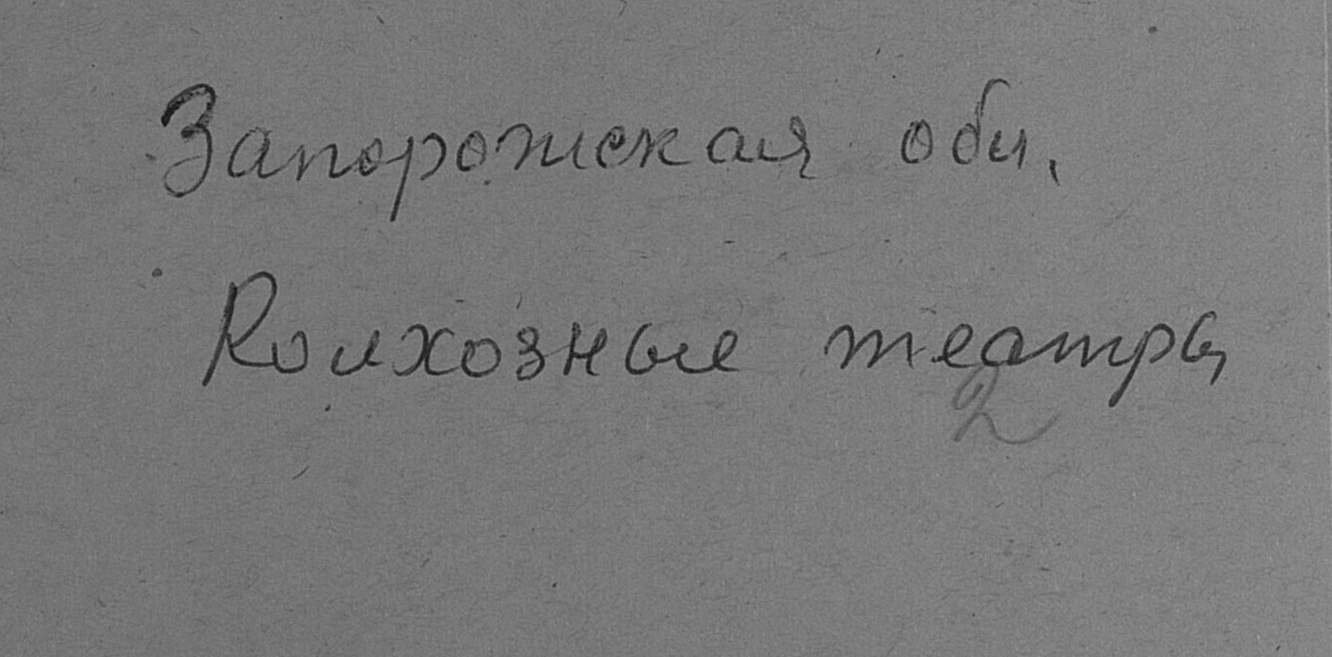 Запорожская обл.
Колхозные театры
2